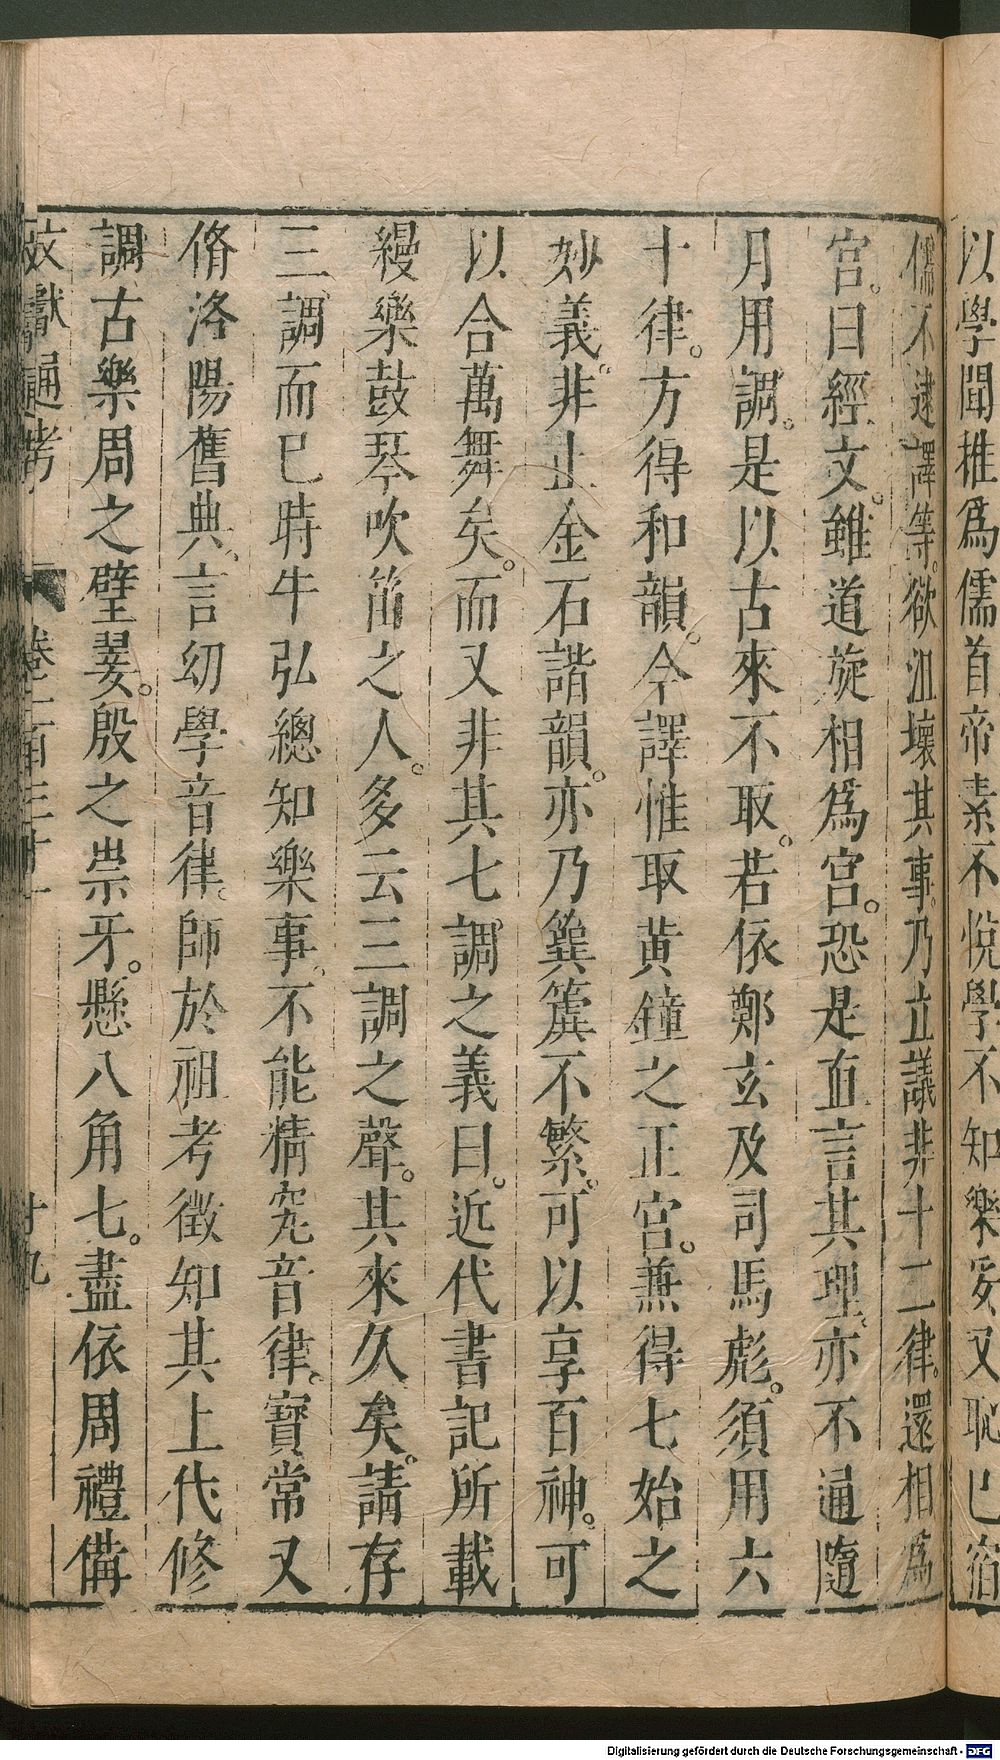 以學聞雅爲儒首帝素不悅學不知樂妥又恥巳宿
儒不逮譯等。欲沮壞其事。乃立議非十二律。還相爲
宮。曰經文。雖道旋相爲宮。恐是直言其理。亦不通隨
月用調。是以古來不取。若依鄭玄及司馬彪。須用六
十律。方得和韻。今譯惟取黄鐘之正宮。兼得七始之
妙義。非止金石諧韻。亦乃簨簴不繁。可以享百神。可
以合萬舞矣。而又非其七調之義曰。近代書記所載
縵樂鼓琴吹笛之人。多云三調之聲。其來久矣。請存
三調而巳時牛弘總知樂事。不能精究音律。寶常又
脩洛陽舊典。言幼學音律。師於祖考徵知其上代修
調古樂周之璧翣。殷之崇牙。懸八角七。盡依周禮備
文獻通考 卷一百三十 十九
Digitalisierung gefördert durch die Deutsche Forschungsgemeinschaft - DFG